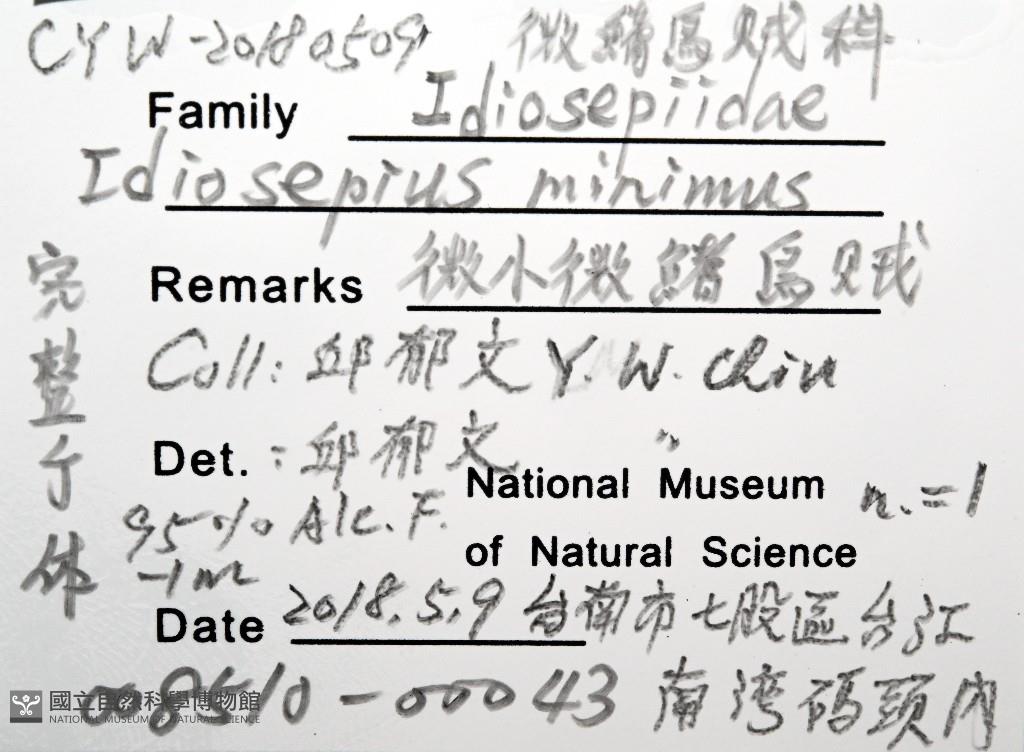 CYW-20180509 微鰭烏賊科
Family Idiosepiidae
Idiosepius minimus
Remarks 微小微鰭烏賊
Coll: 邱郁文 Y. W. Chiu
Det. : 邱郁文 "
National Museum
of Natural Science
n.=1
95% Alc. F.
-1m
Date 2018.5.9 台南市七股區台江
南湾碼頭內
-00043
完整
体
國立自然科學博物館
NATIONAL MUSEUM OF NATURAL SCIENCE